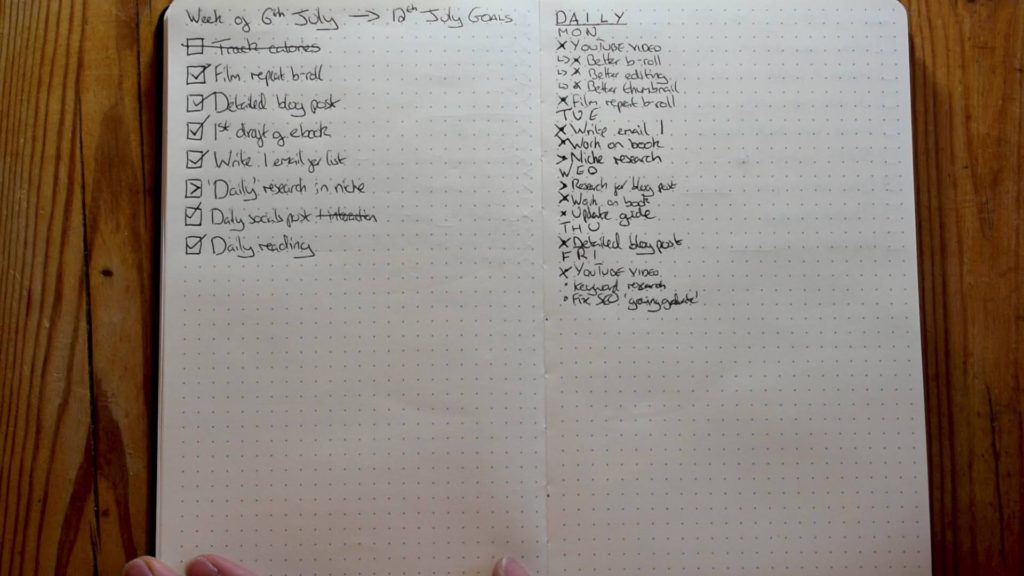 Week of 6th July → 12th July GOALS
Track calories
Film repeat b-roll
Detailed blog post
1st draft of ebook
Write 1 email for list
'Daily' research in niche
Daily socials post + interaction
Daily reading
DAILY
MON
× YOUTUBE VIDEO
↳ × Better b-roll
↳ × Better editing
↳ × Better thumbnail
× Film repeat b-roll
TUE
× Write email 1
× Work on book
> Niche research
WED
> Research for blog post
× Work on book
× Update guide
THU
× Detailed blog post
FRI
× YOUTUBE VIDEO
• Keyword research
• Fix SEO